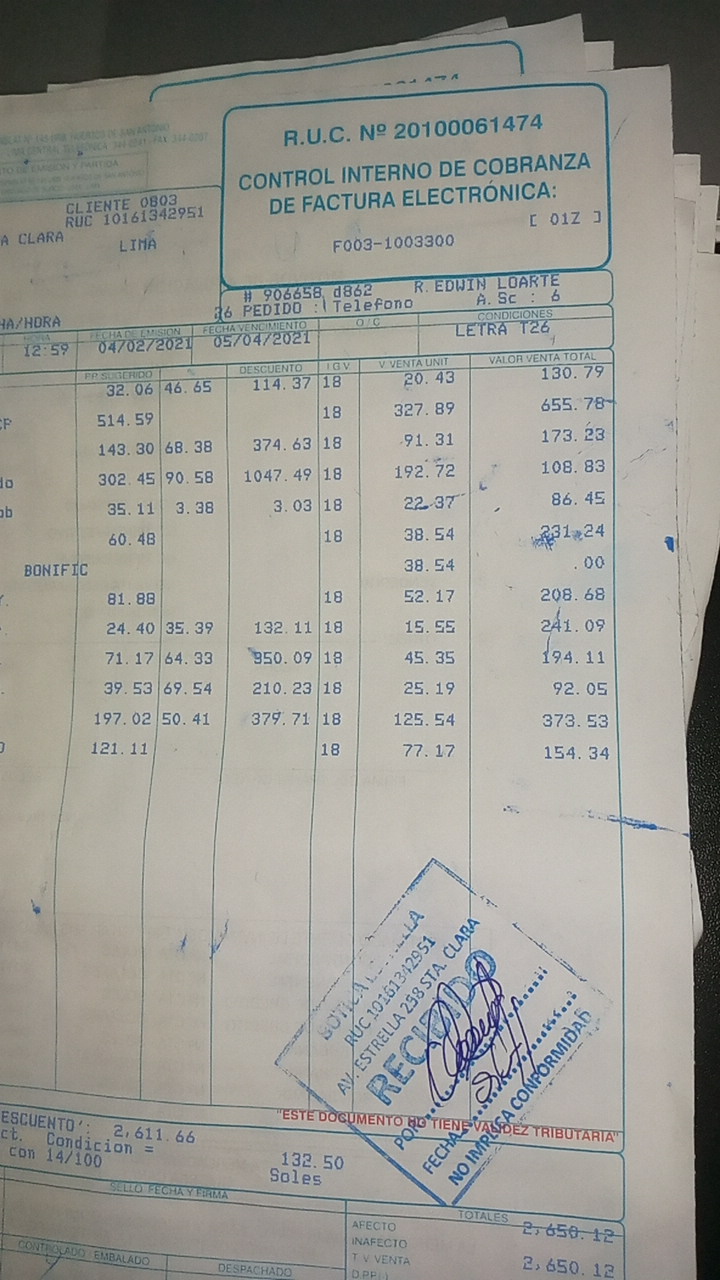 01474
R.U.C. Nº 20100061474
CONTROL INTERNO DE COBRANZA
DE FACTURA ELECTRÓNICA:
[ 01Z ]
F003-1003300
CLIENTE 0803
RUC 10161342951
A CLARA
LIMA
# 906658 d862 R.EDWIN LOARTE
26 PEDIDO : Telefono A.Sc : 6
HA/HORA
HORA FECHA DE EMISION FECHA VENCIMIENTO O / C CONDICIONES
12:59 04/02/2021 05/04/2021 LETRA T26
P.P. SUGERIDO % DESCUENTO I G V V. VENTA UNIT VALOR VENTA TOTAL
32.06 46.65 114.37 18 20.43 130.79
514.59 18 327.89 655.78
143.30 68.38 374.63 18 91.31 173.23
do 302.45 90.58 1047.49 18 192.72 108.83
ob 35.11 3.38 3.03 18 22.37 86.45
60.48 18 38.54 231.24
BONIFIC 38.54 .00
81.88 18 52.17 208.68
24.40 35.39 132.11 18 15.55 241.09
71.17 64.33 350.09 18 45.35 194.11
39.53 69.54 210.23 18 25.19 92.05
197.02 50.41 379.71 18 125.54 373.53
121.11 18 77.17 154.34
BOTICA
RUC 10161342951
AV. ESTRELLA 258 STA. CLARA
RECIBIDO
POR
FECHA
NO IMPLICA CONFORMIDAD
"ESTE DOCUMENTO NO TIENE VALIDEZ TRIBUTARIA"
ESCUENTO': 2,611.66
ct. Condicion = 132.50
con 14/100 Soles
SELLO FECHA Y FIRMA
TOTALES
AFECTO 2,650.12
INAFECTO
T.V VENTA 2,650.12
CONTROLADO - EMBALADO DESPACHADO